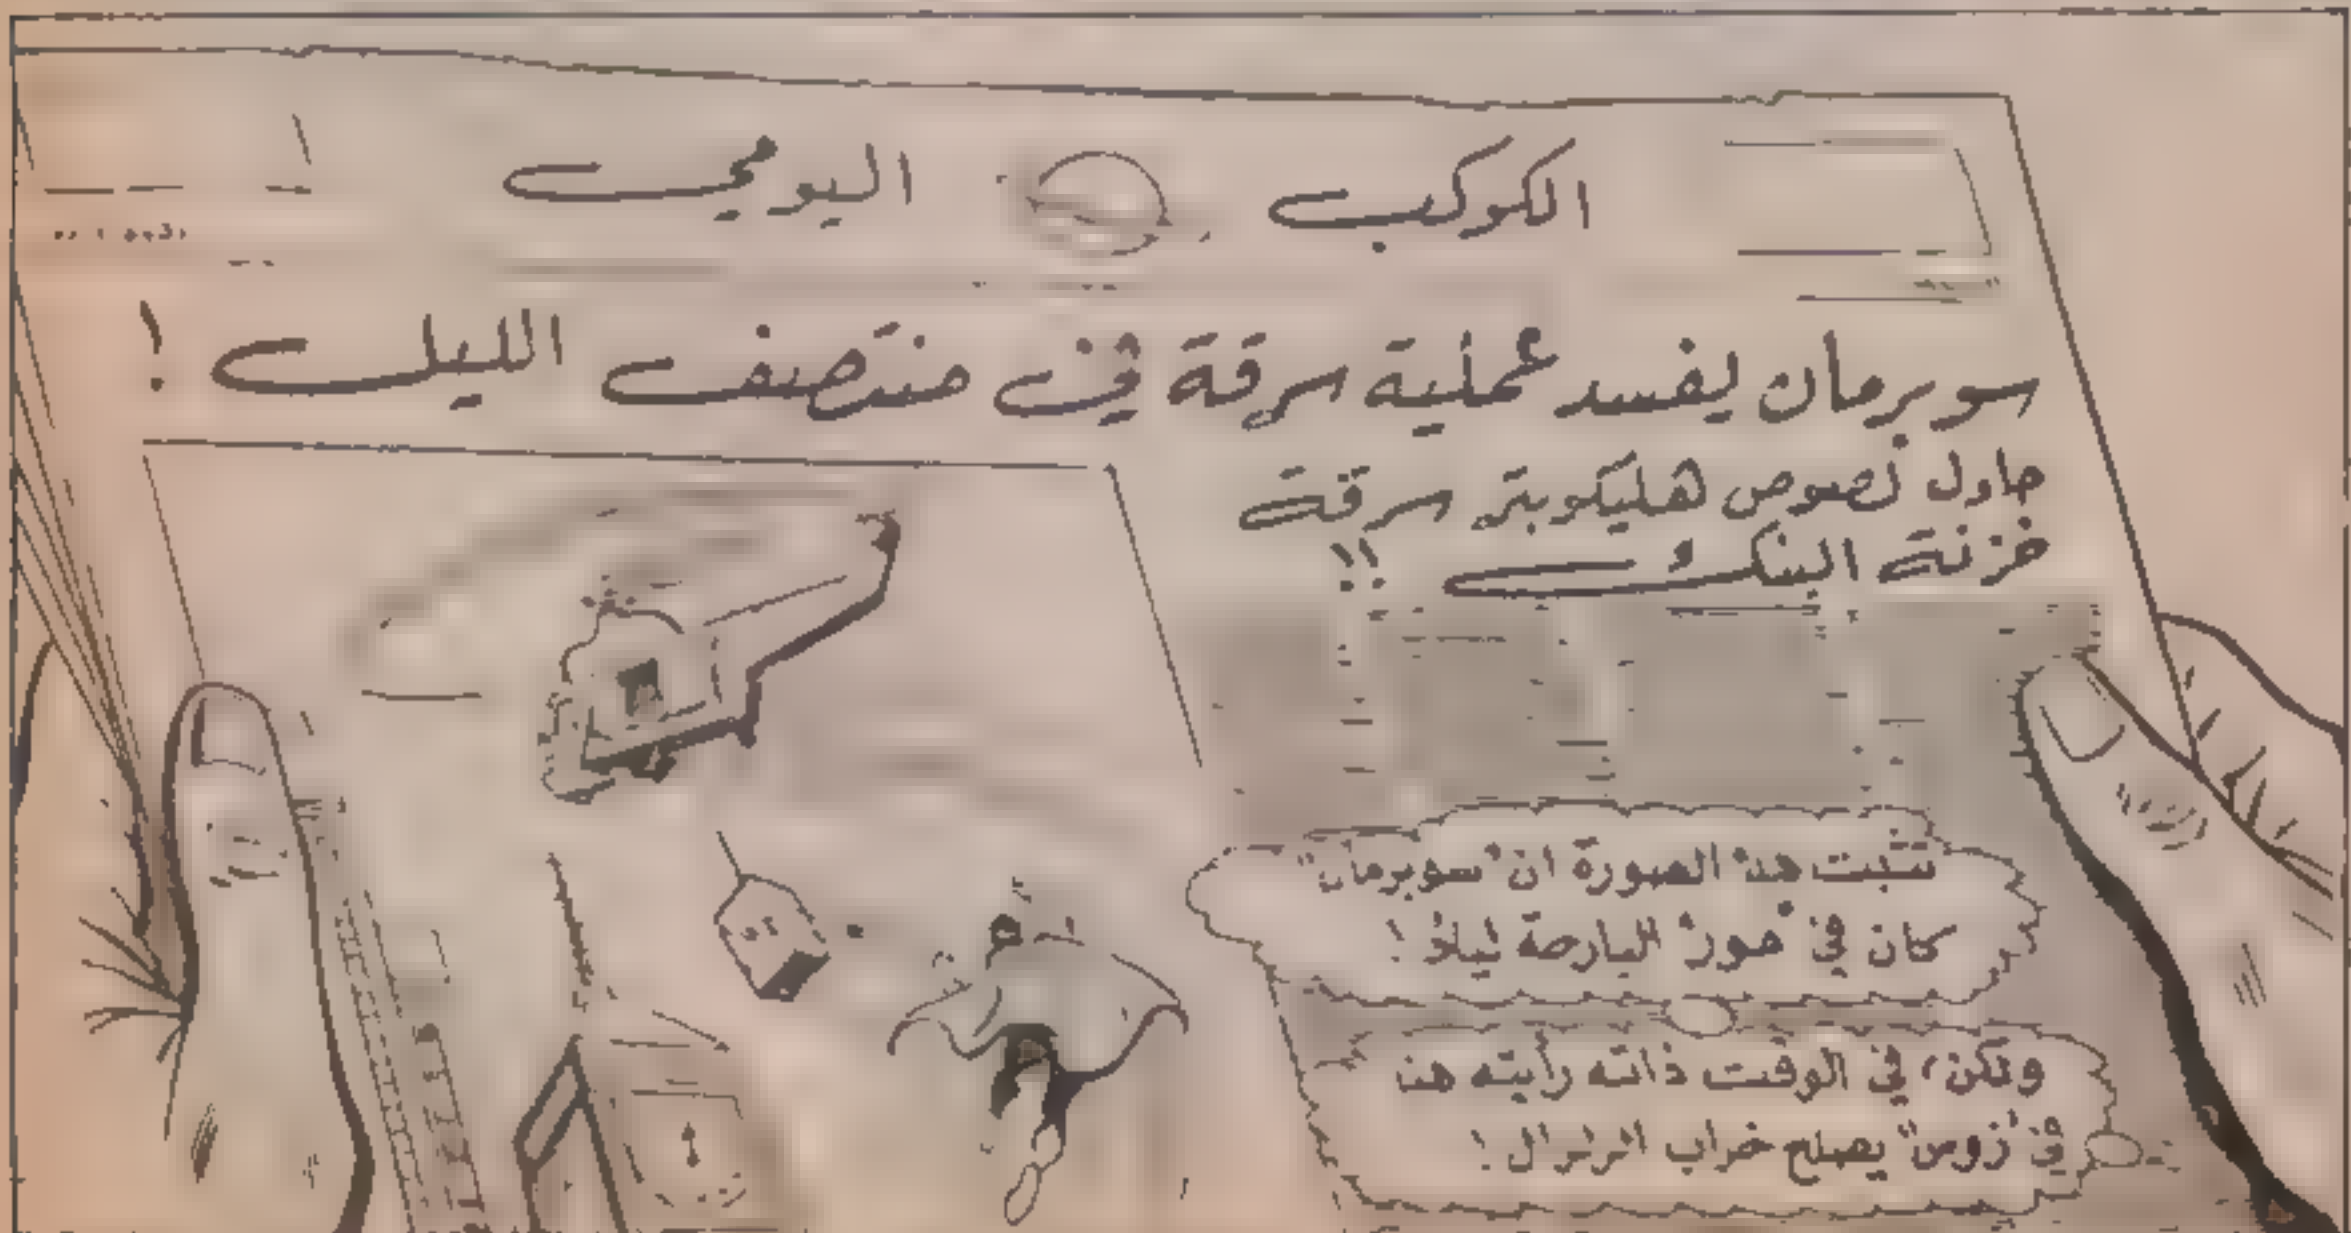 الكوكب اليومي
سوبرمان يفسد عملية سرقة في منتصف الليل !
حاول لصوص هليكوبتر سرقة
خزنة البنك !!
تثبت هذه الصورة ان "سوبرمان"
كان في "مور" البارحة ليلاً !
ولكن، في الوقت ذاته رأيته هنا
في "زوس" يصلح خراب الزلزال !